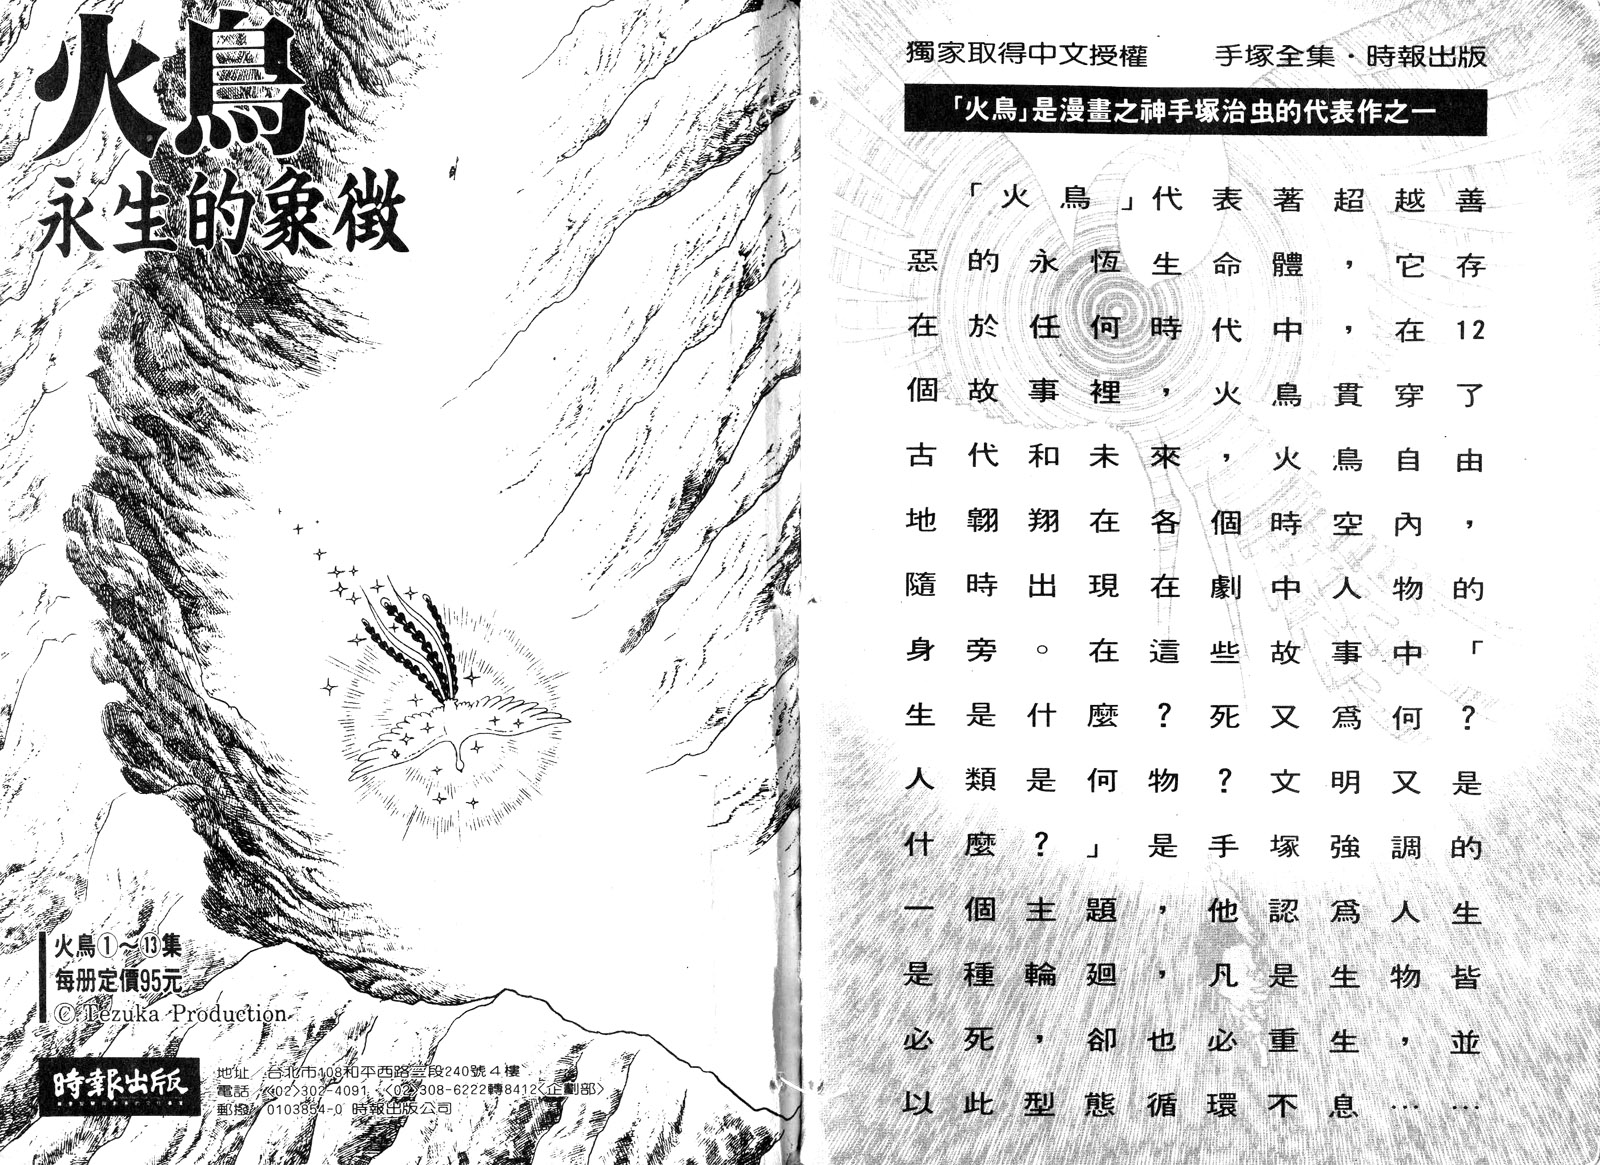 火鳥
永生的象徵
火鳥①～⑬集
每册定價95元
©Tezuka Production
時報出版
地址 台北市108和平西路三段240號4樓
電話 (02)302-4091·(02)308-6222轉8412<企劃部>
郵撥 0103854-0 時報出版公司
獨家取得中文授權 手塚全集·時報出版
「火鳥」是漫畫之神手塚治虫的代表作之一
「火鳥」代表著超越善
惡的永恆生命體，它存
在於任何時代中，在12
個故事裡，火鳥貫穿了
古代和未來，火鳥自由
地翱翔在各個時空內，
隨時出現在劇中人物的
身旁。在這些故事中「
生是什麼？死又爲何？
人類是何物？文明又是
什麼？」是手塚強調的
一個主題，他認爲人生
是種輪迴，凡是生物皆
必死，卻也必重生，並
以此型態循環不息……